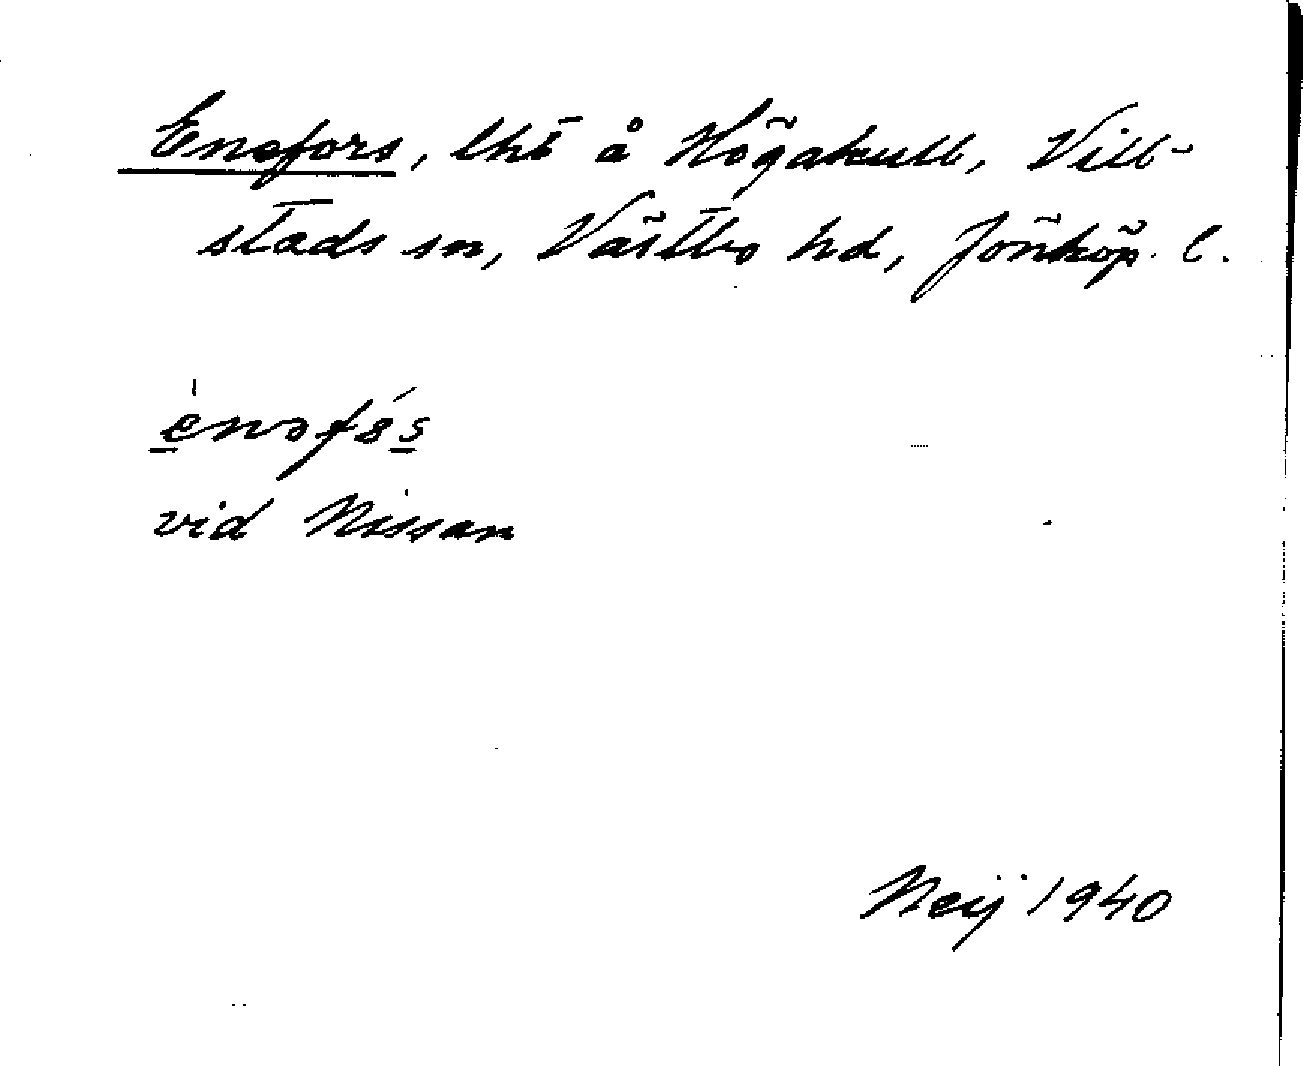 Enefors, lht å Högakull, Vill-
stads sn, Västbo hd, Jönköp. l.
vid Nissan
Neij 1940